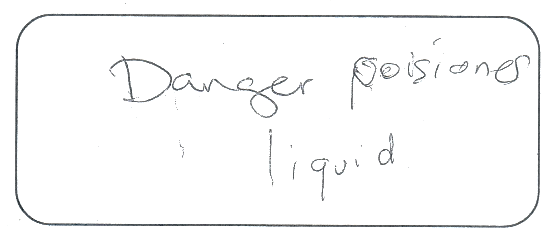 Danger poisiones
liquid